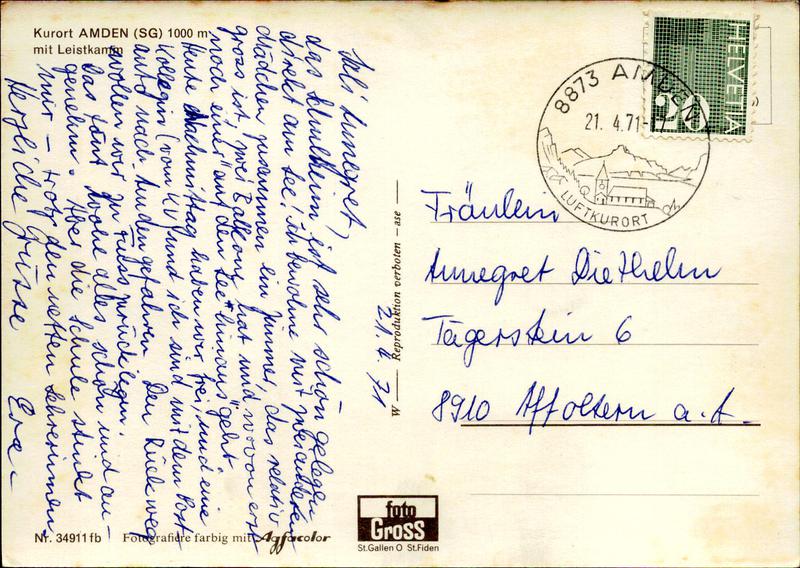 Kurort AMDEN (SG) 1000 m
mit Leistkamm
Hoi Annegret,
das Schulheim ist sehr schön gelegen
direkt am See! Ich bewohne mit zwei anderen
Mädchen zusammen ein Zimmer, das relativ
gross ist, zwei Balkone hat und wovon erst
noch einer auf den See "hinaus" geht.
Heute Nachmittag haben wir frei, und eine
Kollegin (vom KV) und ich sind mit dem Post-
auto nach Amden gefahren. Den Rückweg
wollen wir zu Fuss zurücklegen.
Das tönt wohl alles schön und an-
genehm. Aber die Schule stinkt
mir – trotz den netten Lehrerinnen.
Herzliche Grüsse Eva.
21.4.71
W — Reproduktion verboten – ase —
HELVETIA
20
8873 AMDEN
21. 4.71
LUFTKURORT
Fräulein
Annegret Diethelm
Tägerstein 6
8910 Affoltern a.A.
Nr. 34911 fb Fotografiere farbig mit Agfacolor
foto
Gross
St.Gallen O St.Fiden